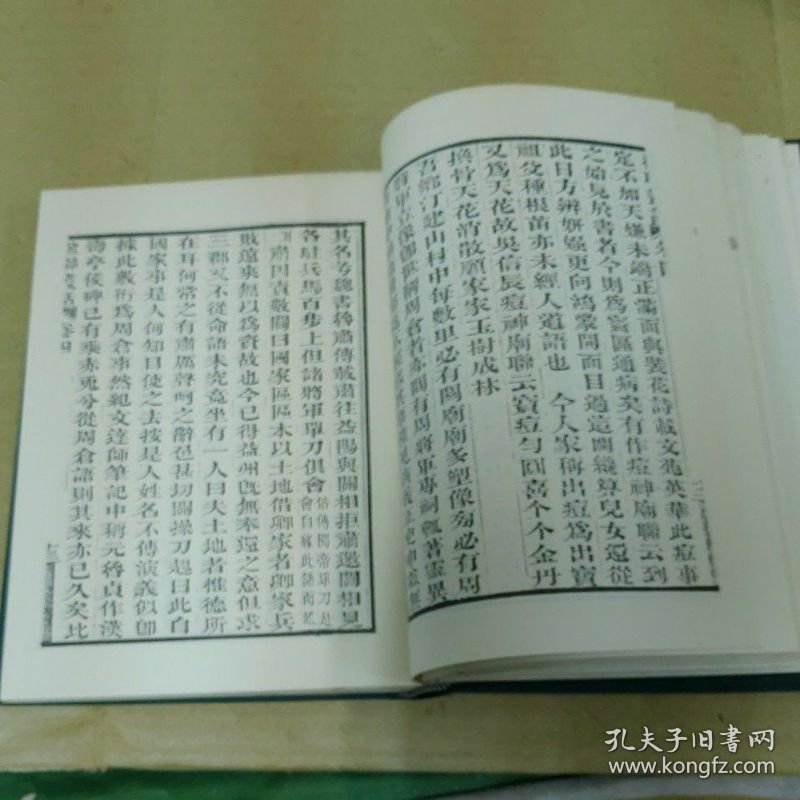 定不加天嫌未端正滿面與裝花詩載文苑英華此痘事
之始見於書者今則爲寰區通病矣有作痘神廟聯云到
此日方辨妍媸更向鴻蒙開面目過這關纔算兒女還從
祖父種根苗亦未經人道語也 今人家稱出痘爲出寶
又爲天花故吳信辰痘神廟聯云寶痘勻圓喜个个金丹
換骨天花消散願家家玉樹成林
吾鄉汀建山村中每數里必有關廟廟多塑像旁必有周
將軍立像鄧
其名考魏書魯肅傳載肅往益陽與關相拒肅邀關相見
各駐兵馬百步上但諸將軍單刀俱會
俗傳關帝單刀赴
會自緣此語而訛
肅因責數關曰國家區區本以土地借卿家者卿家兵
敗遠來無以爲資故也今已得益州旣無奉還之意但求
三郡又不從命語未究竟坐有一人曰夫土地者惟德所
在耳何常之有肅厲聲呵之辭色甚切關操刀起曰此自
國家事是人何知目使之去按是人姓名不傳演義似卽
據此敷衍爲周倉事然紀文達師筆記中稱元魯貞作漢
壽亭侯碑已有乘赤兎兮從周倉語則其來亦已久矣比
孔夫子旧书网
www.kongfz.com